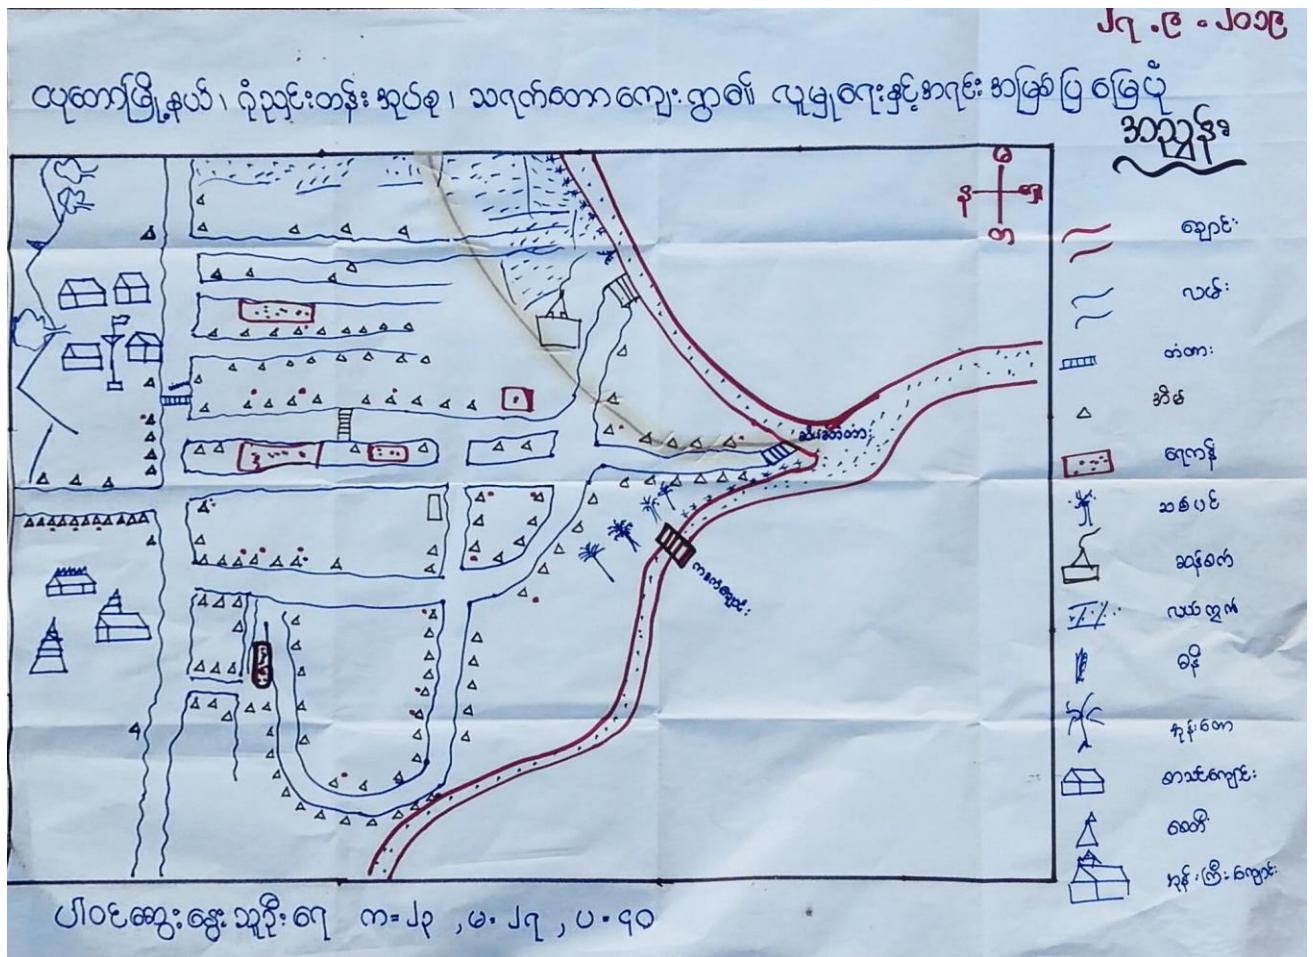 ၂၇.၉.၂၀၁၉
ငပုတောမြို့နယ်၊ ဂုံညှင်းတန်းအုပ်စု၊ သရက်တောကျေးရွာ၏ လူမှုရေးနှင့်အရင်းအမြစ်ပြ မြေပုံ
အညွှန်း
မ
န ရှေ့
တ
ချောင်း
လမ်း
တံတား
အိမ်
ရေကန်
သစ်ပင်
ဆန်စက်
လယ်ကွက်
ဓနိ
အုန်းတော
စာသင်ကျောင်း
စေတီ
ဘုန်းကြီးကျောင်း
ဆိပ်ခံတံတား
ပါဝင်ဆွေးနွေးသူဦးရေ ကျ=၂၃, မ=၂၇, ပ=၄၀